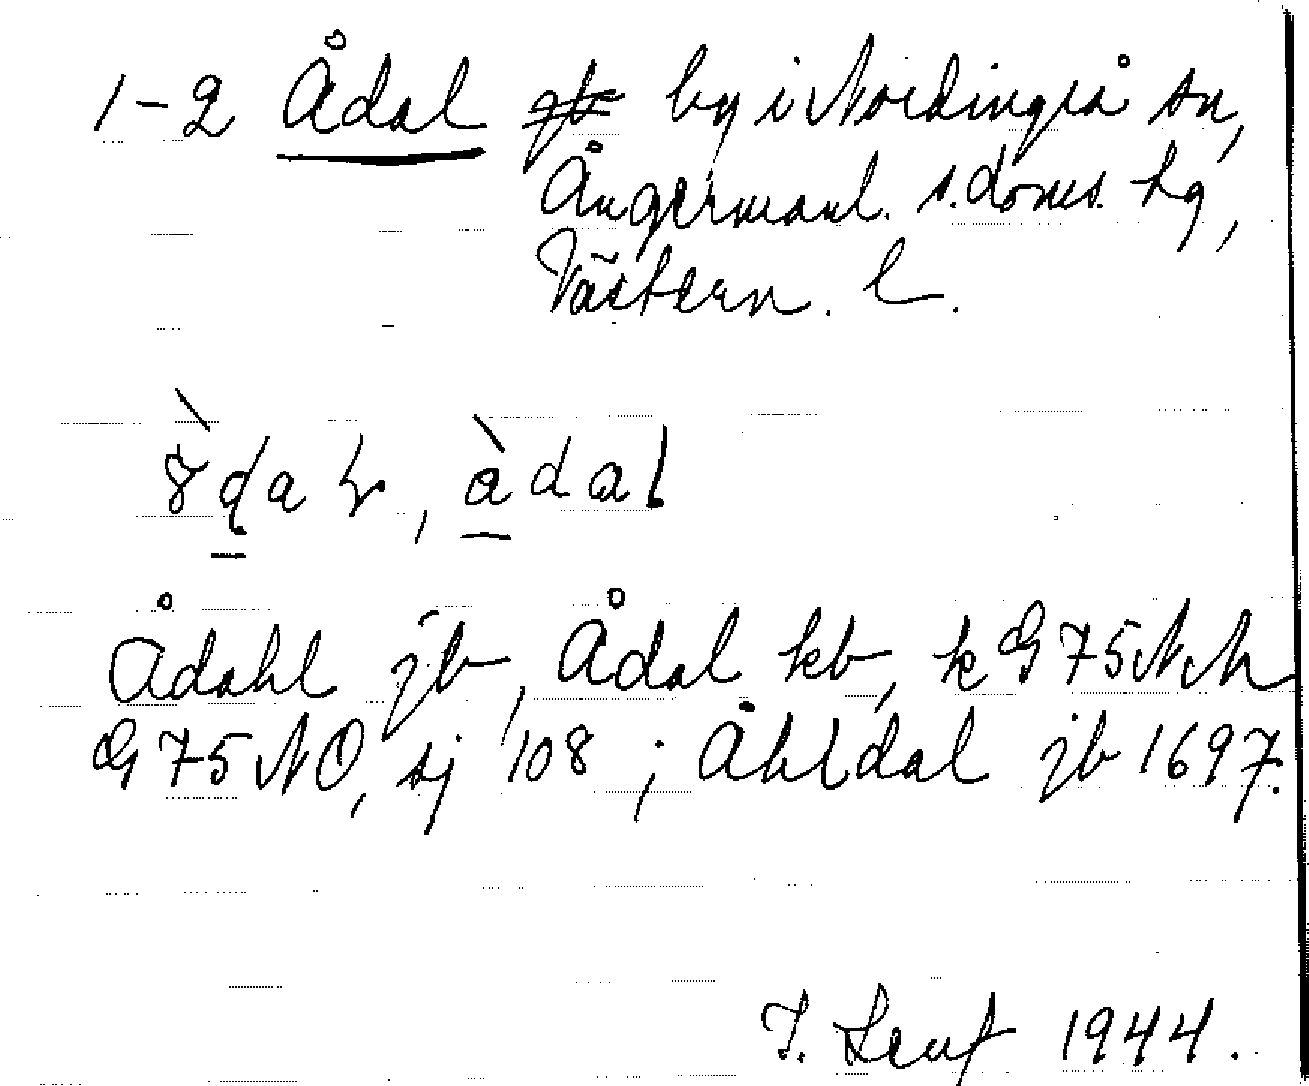 1-2 Ådal by i Nordingrå sn,
Ångermanl. s. doms. hg,
Västern. l.
àdal
Ådahl jb, Ådal kb, k G 75 NV
G 75 NO, sj 108 ; Åhldal jb 1697.
1944.